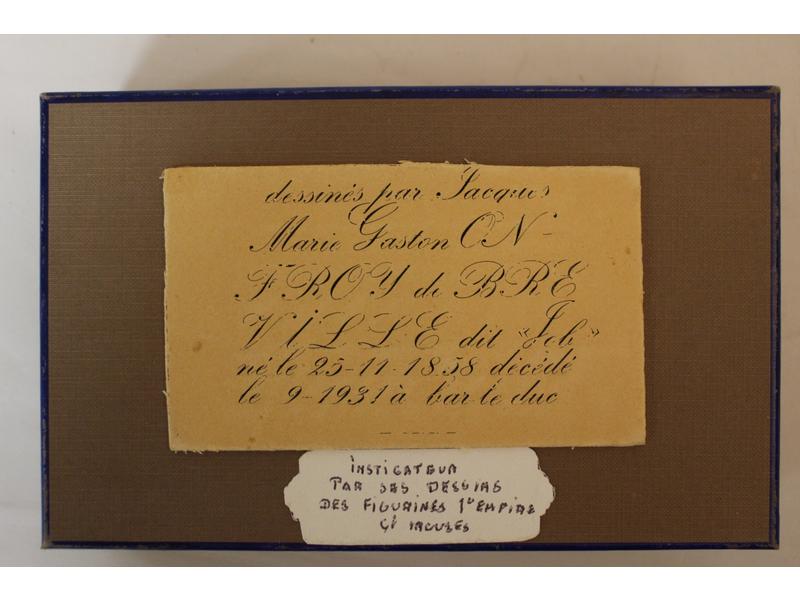 dessinés par Jacques
Marie Gaston ON-
FROY de BRE
VILLE dit "Job"
né le 25-11-1858 décédé
le 9-1931 à bar le duc
INSTIGATEUR
PAR SES DESSINS
DES FIGURINES 1º EMPIRE